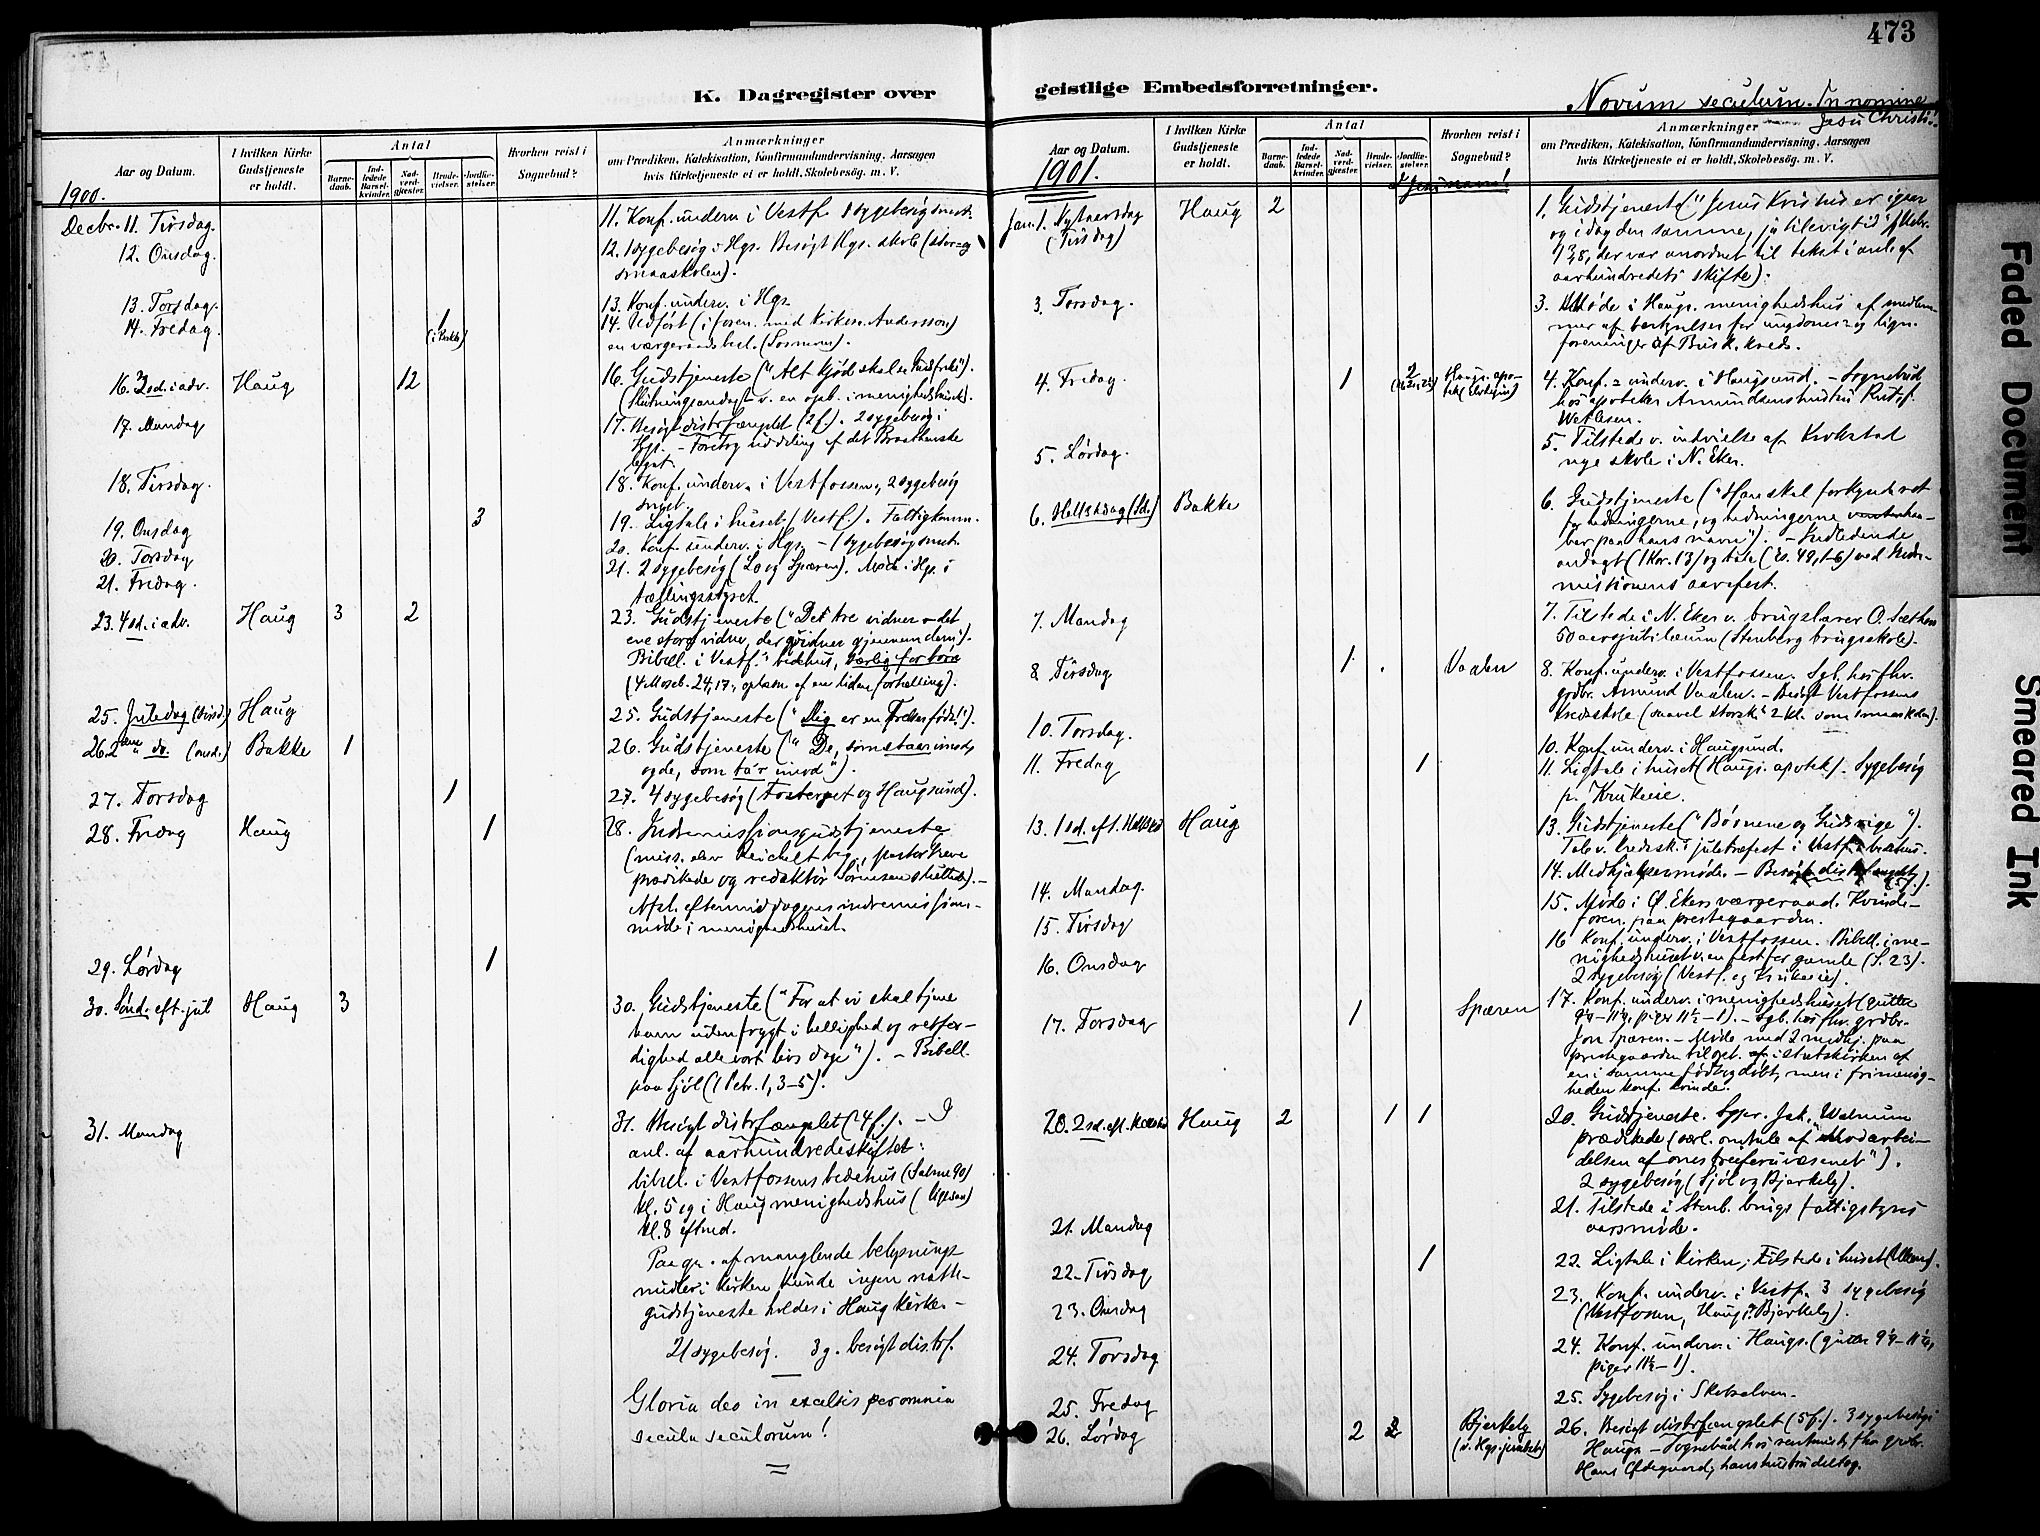 473
K. Dagregister over
geistlige Embedsforretninger.
Novum seculum. In nomine
Jesu Christi!
Aar og Datum.
I hvilken Kirke
Gudstjeneste
er holdt.
Antal
Barne-
daab.
Ind-
ledede
Barsel-
kvinder.
Nad-
verd-
gjæster.
Brude-
vielser.
Jordfæ-
stelser.
Hvorhen reist i
Sognebud?
Anmærkninger
om Prædiken, Katekisation, Konfirmandundervisning, Aarsagen
hvis Kirketjeneste ei er holdt, Skolebesøg. m. V.
1900.
Decbr. 11. Tirsdag.
11. Konf. underv. i Vestf. 1 sygebesög smst.
12. Onsdag.
12. 1 sygebesög i Hgs. Besögt Hgs. skole (stor- og
smaaskolen).
13. Torsdag.
13. Konf. underv. i Hgs.
14. Fredag.
1
14. (i foren. med Kirkes. Anderssen)
en værgeraadsbesl.
16. 3 sd. i adv.
Haug
12
16. Gudstjeneste ("Alt kjöd skal se Guds frelse").
v. en i menighedshuset).
17. Mandag
17. Besögt distrfængslet (2 f.). 2 sygebesög i
Hgs. - Foretog uddeling af det
legat.
18. Tirsdag.
18. Konf. underv. i Vestfossen, 2 sygebesög
smst.
19. Onsdag
3
19. Ligtale i huset (Vestf.). Fattigkomm.
20. Torsdag
20. Konf. underv. i Hgs. - 1 sygebesög smst.
21. Fredag.
21. 2 sygebesög (Lo og Spæren). Möde i Hgs. i
tællingsstyret.
23. 4 sd. i adv.
Haug
3
2
23. Gudstjeneste ("De tre vidner og det
ene store vidne, der vidner gjennem dem").
Bibell. i Vestf. bedehus, særlig for börn
(4 Moseb. 24,17, oplæsn. af en liden fortælling).
25. Juledag (tirsd.)
Haug
25. Gudstjeneste ("Dig er en Frelser födt!").
26. 2den do. (onsd.)
Bakke
1
26. Gudstjeneste ("De, som staar imod,
og de, som ta'r imod").
27. Torsdag
1
27. 4 sygebesög ( og Haugsund).
28. Fredag
Haug
1
28. Indremissionsgudstjeneste
(miss. elev Reichelt beg., pastor
prædikede og redaktör Sörensen sluttede). -
Afsl. eftermiddagens indremissions-
möde i menighedshuset.
29. Lördag
1
30. Sönd. eft. jul
Haug
3
30. Gudstjeneste ("For at vi skal tjene
ham uden frygt i hellighed og retfær-
dighed alle vort livs dage"). - Bibell.
paa Sjöl (1 Petr. 1, 3-5).
31. Mandag
31. Besögt distrfængslet (4 f.). - I
anl. af aarhundredeskiftet:
bibell. i Vestfossens bedehus (Salme 90)
kl. 5 og i Haug menighedshus
kl. 8 eftmd.
Paa gr. af manglende belysnings-
midler i kirken kunde ingen natte-
gudstjeneste holdes i Haug kirke. -
21 sygebesög. 3 g. besögt distrf.
Gloria deo in excelsis per omnia
secula seculorum!
Aar og Datum.
1901.
I hvilken Kirke
Gudstjeneste
er holdt.
Antal
Barne-
daab.
Ind-
ledede
Barsel-
kvinder.
Nad-
verd-
gjæster.
Brude-
vielser.
Jordfæ-
stelser.
Hvorhen reist i
Sognebud?
I Jesu navn!
Anmærkninger
om Prædiken, Katekisation, Konfirmandundervisning. Aarsagen
hvis Kirketjeneste ei er holdt, Skolebesög. m. V.
Jan. 1. Nytaarsdag
(Tirsdag)
Haug
2
1. Gudstjeneste ("Jesus Kristus er igaar
og idag den samme, ja til evig tid", Hebr.
13,8, der var anordnet til tekst i anl. af
aarhundredets skifte).
3. Torsdag.
3. Möde i Haugs menighedshus af medlem-
mer af bestyrelser for ungdoms- og lign.
foreninger af Busk. kreds.
4. Fredag.
1
2
4. Konf. underv. i Haugsund. - Sognebud
hos apoteker Amundsens hustru
5. Lördag.
5. Tilstede v. indvielse af Krokstad
nye skole i N. Eker.
6. Hellr. 3 dag (Sö.)
Bakke
6. Gudstjeneste ("Han skal forkynde ret
for hedningerne, og hedningerne
paa hans navn"). - Indledende
andagt (1 Kor. 13) og tale (Es. 49, 1-6) ved Indre-
missionens aarsfest.
7. Mandag
7. Tilstede i N. Eker v. brugslærer O. Sæthers
50 aarsjubilæum (Stenberg brugsskole).
8 Tirsdag
1
Vaalen
8. Konf. underv. i Vestfossen. Sgb. hos fhv.
grdbr. Amund Vaalen. - Besögt Vestfossens
kredsskole (saavel storsk.s 2 kl. som smaaskolen).
10. Torsdag.
10. Konf. underv. i Haugsund.
11. Fredag
1
11. Ligtale i huset (Haugs. apotek). Sygebesög
p. Krukeie.
13. 1 sd. eft. Hel3k.
Haug
13. Gudstjeneste ("Börnene og Guds rige").
Tale v. kredssk.s juletræfest i Vestf. bedehus.
14. Mandag.
14. Medhjælpermöde. - Besögt distrfængslet
15. Tirsdag
15. Möde i Ö. Ekers værgeraad. Kvinde-
foren. paa prestegaarden.
16. Onsdag
16 Konf. underv. i Vestfossen. Bibell. i me-
nighedshuset v. en fest for gamle (S. 23).
2 sygebesög (Vestf. og Krukeie).
17. Torsdag
1
Spæren
17. Konf. underv. i menighedshuset (gutter
9½-11¼, piger 11½-1). - Sgb. hos fhv. grdbr.
Jon Spæren. - Möde med 2 medhj. paa
prestegaarden til opt. i statskirken af
en i samme född og döbt, men i frimenig-
heden konf. kvinde.
20. 2 sd. eft. Hel3k.
Haug
2
1
1
20. Gudstjeneste. Sgpr. Jak. Walnum
prædikede (særl. omtale af "Modarbei-
delsen af omstreiferuvæsenet").
2 sygebesög (Sjöl og Bjerkely).
21. Mandag
21. Tilstede i Stenb. brugs fattigstyres
aarsmöde.
22. Tirsdag
1
22. Ligtale i kirken; tilstede i huset (Ullern).
23. Onsdag
23. Konf. underv. i Vestf. 3 sygebesög
(Vestfossen, Haug, Bjerkely).
24. Torsdag
24. Konf. underv. i Haugs. (gutter 9½-11¼,
piger 11½-1).
25. Fredag
25. Sygebesög i Skotselven.
26. Lördag
2
2
Bjerkely
(v. Hgs. jernbst.)
26. Besögt distrfængslet (5 f.). 3 sygebesög i
Haugs. - Sognebud hos fhv. grdbr.
Hans hans hustru deltog.
Faded Document
Smeared Ink